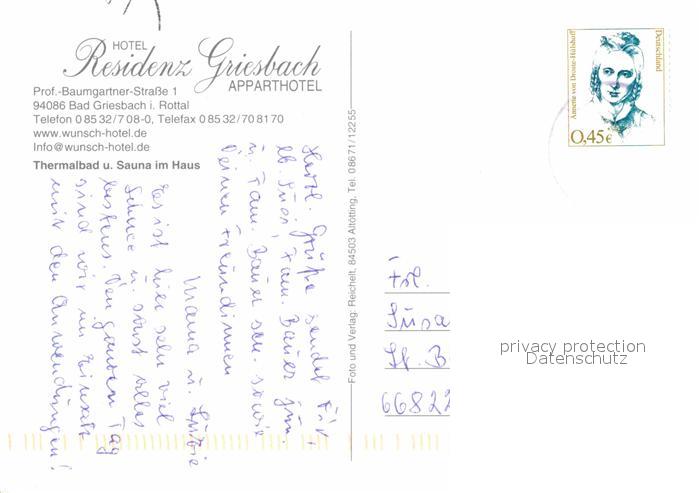 HOTEL
Residenz Griesbach
APPARTHOTEL
Prof.-Baumgartner-Straße 1
94086 Bad Griesbach i. Rottal
Telefon 0 85 32/7 08-0, Telefax 0 85 32/70 81 70
www.wunsch-hotel.de
Info@wunsch-hotel.de
Thermalbad u. Sauna im Haus
Herzl. Grüße sendet Dir +
lb. Susi, Fam. Bauer jun.
u. Fam. Bauer sen. sowie
Deinen Freundinnen
Mama u.
Es ist hier sehr viel
Schnee u. sonst alles
bestens. Den ganzen Tag
sind wir im Einsatz
mit den Anwendungen!
Foto und Verlag: Reichelt, 84503 Altötting, Tel. 08671/12255
Annette von Droste-Hülshoff
Deutschland
0,45€
Frl.
Susa
66822
privacy protection
Datenschutz